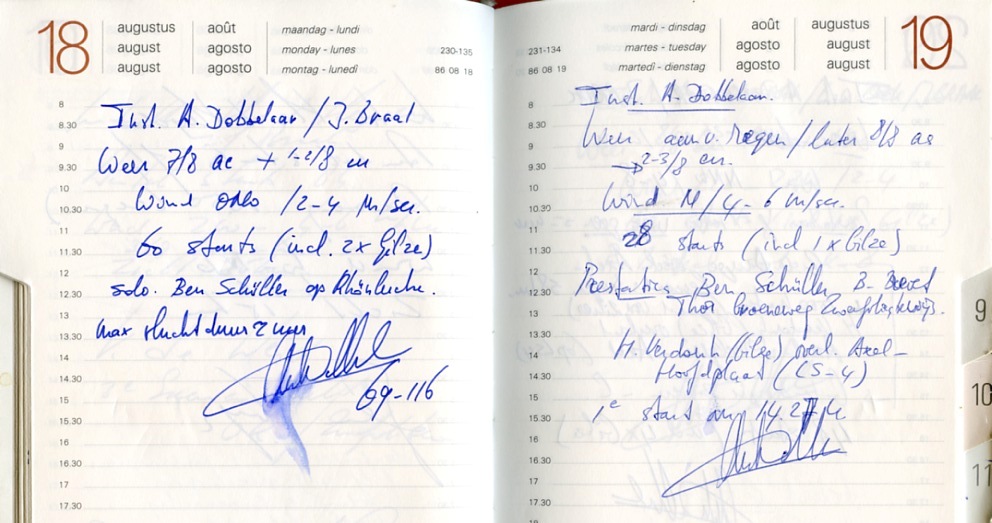 18
augustus août maandag - lundi
august agosto monday - lunes 230-135
august agosto montag - lunedì 86 08 18
8
Inst. A. Dobbelaar / J. Braal
8.30
9
Weer 7/8 ac + 1-2/8 cu
9.30
10
Wind ONO / 2-4 M/sec.
10.30
11
60 starts (incl. 2x Gilze)
11.30
12
solo. Ben Schüller op Rhönlerche.
12.30
13
Max vluchtduur 2 uur
13.30
14
14.30
69-116
15
15.30
16
16.30
17
17.30
mardi - dinsdag août augustus 19
231-134 martes - tuesday agosto august
86 08 19 martedì - dienstag agosto august
8
Inst. A. Dobbelaar.
8.30
Weer aanv. Regen / later 8/8 ac
9
→ 2-3/8 cu.
9.30
10
Wind N / 4-6 m/sec.
10.30
11
28 starts (incl 1x Gilze)
11.30
12
Prestaties Ben Schüller B-Brevet
12.30
Thor Groeneweg
13
13.30
H. Verdonk (Gilze) overl. Axel-
14
Hoofdplaat (LS-4)
14.30
15
1e start om 14.27
15.30
16
16.30
17
17.30
18
9
10
11